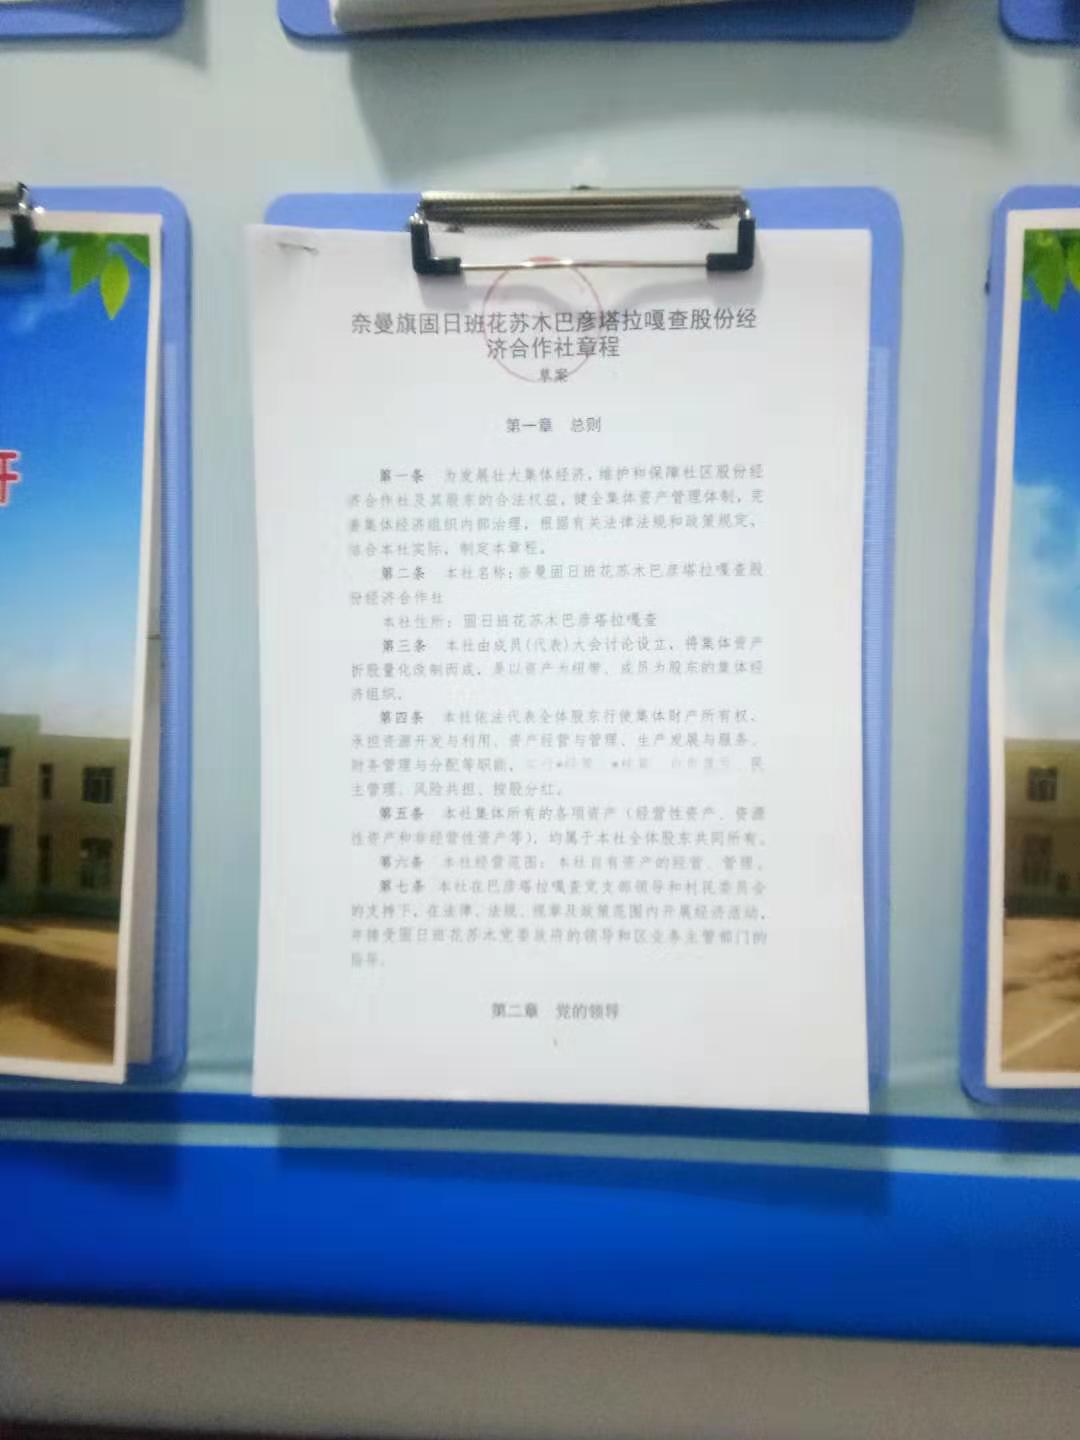 奈曼旗固日班花苏木巴彦塔拉嘎查股份经
济合作社章程
草案
第一章 总则
第一条 为发展壮大集体经济,维护和保障社区股份经
济合作社及其股东的合法权益,健全集体资产管理体制,完
善集体经济组织内部治理,根据有关法律法规和政策规定,
结合本社实际,制定本章程。
第二条 本社名称:奈曼固日班花苏木巴彦塔拉嘎查股
份经济合作社
本社住所:固日班花苏木巴彦塔拉嘎查
第三条 本社由成员(代表)大会讨论设立,将集体资产
折股量化改制而成,是以资产为纽带、成员为股东的集体经
济组织。
第四条 本社依法代表全体股东行使集体财产所有权、
承担资源开发与利用、资产经营与管理、生产发展与服务、
财务管理与分配等职能, 民
主管理、风险共担、按股分红。
第五条 本社集体所有的各项资产(经营性资产、资源
性资产和非经营性资产等),均属于本社全体股东共同所有。
第六条 本社经营范围:本社自有资产的经营、管理。
第七条 本社在巴彦塔拉嘎查党支部领导和村民委员会
的支持下,在法律、法规、规章及政策范围内开展经济活动,
并接受固日班花苏木党委政府的领导和区业务主管部门的
指导。
第二章 党的领导
1